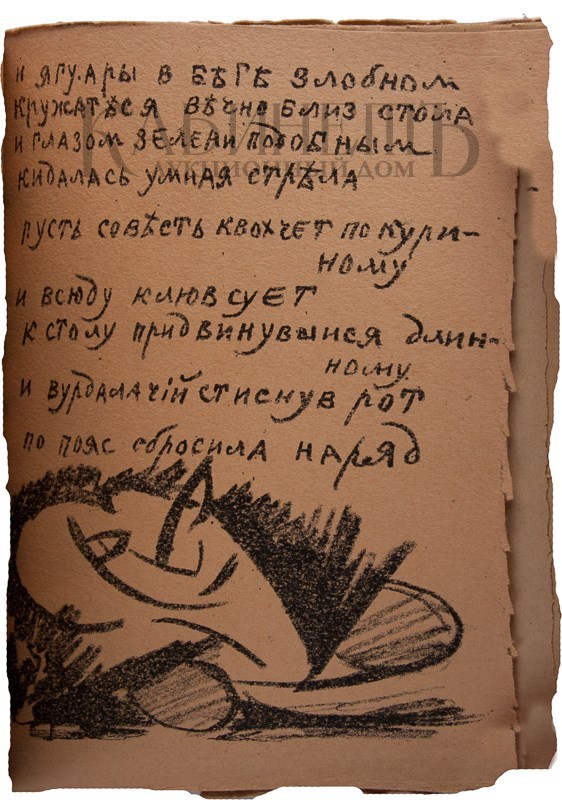 и ягуары в бѣгѣ злобном
кружаться вѣчно близ стола
и глазом зелени подобным
кидалась умная стрѣла
пусть совѣсть квохчет по кури-
ному
и всюду клюв сует
к столу придвинувшися длин-
ному
и вурдалачій стиснув рот
по пояс сбросила наряд
КАБИНЕТЪ
АУКЦИОННЫЙ ДОМ